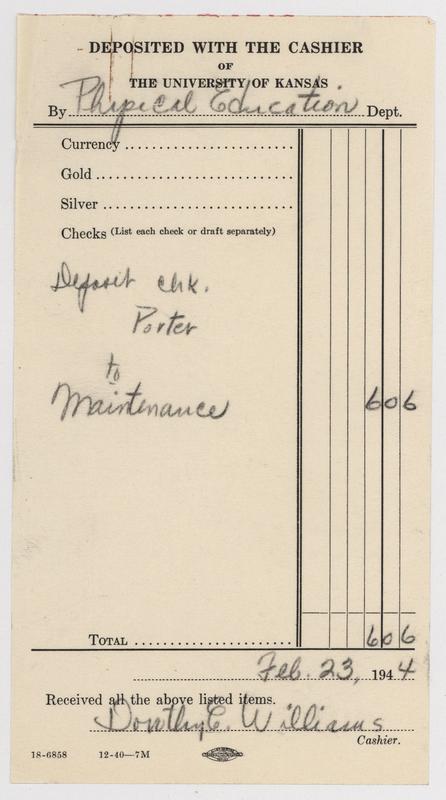 DEPOSITED WITH THE CASHIER
OF
THE UNIVERSITY OF KANSAS
By Physical Education Dept.
Currency
Gold
Silver
Checks (List each check or draft separately)
Deposit chk.
Porter
to
Maintenance 6 06
TOTAL 6 06
Feb. 23, 1944
Received all the above listed items.
Dorothy E. Williams
Cashier.
18-6858 12-40—7M